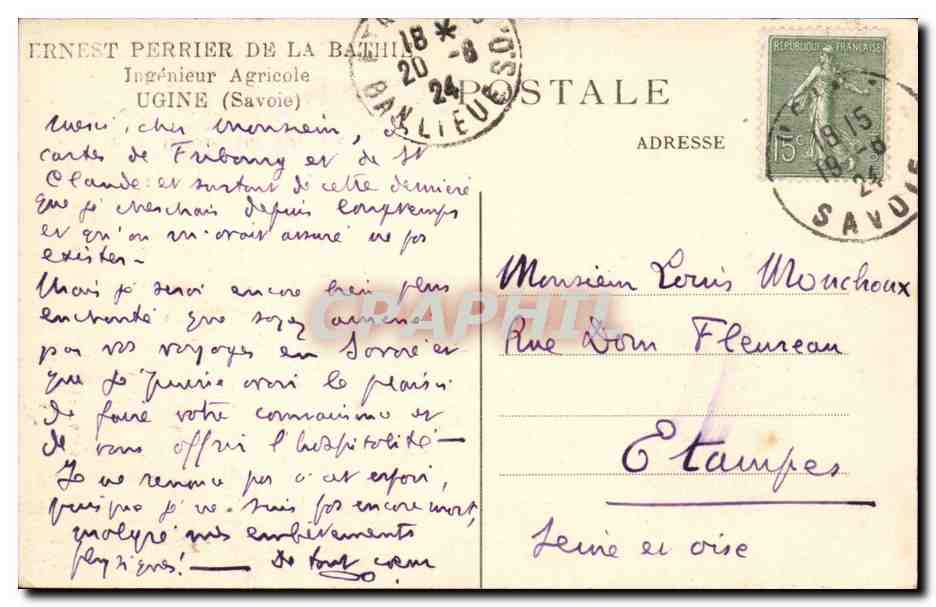 ERNEST PERRIER DE LA BATHIE
Ingénieur Agricole
UGINE (Savoie)
POSTALE
ADRESSE
18 *
20 -8
24
BANLIEUE
REPUBLIQUE FRANÇAISE
15c
18 15
19 -8
24
SAVOIE
Merci, cher Monsieur, des
cartes de Fribourg et de St
Claude et surtout de cette dernière
que je cherchais depuis longtemps
et qu'on m'avait assuré ne pas
exister -
Mais je serai encore bien plus
enchanté que soyez amené
par vos voyages en Savoie et
que je puisse avoir le plaisir
de faire votre connaissance et
de vous offrir l'hospitalité -
Je ne renonce pas à cet espoir,
puisque je ne suis pas encore mort,
malgré mes embêtements
physiques! - De tout coeur
Monsieur Louis Mouchoux
Rue Dom Fleureau
Etampes
Seine et oise
CRAPHIL